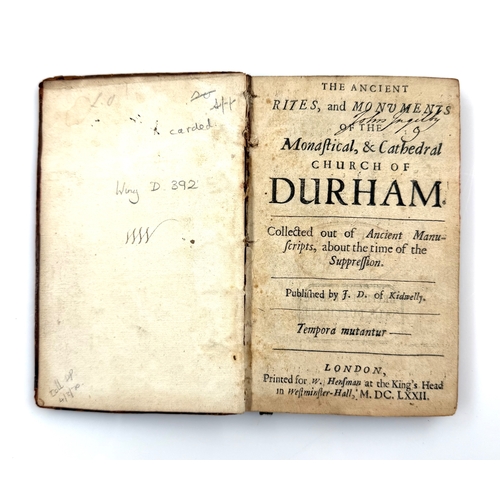 carded
Wing D. 392
THE ANCIENT
RITES, and MONUMENTS
John Ingilby
OF THE
Monaſtical, & Cathedral
CHURCH OF
DURHAM.
Collected out of Ancient Manu-
ſcripts, about the time of the
Suppreſſion.
Publiſhed by J. D. of Kidwelly.
Tempora mutantur —
LONDON,
Printed for W. Henſman at the King's Head
in Weſtminſter-Hall, M. DC. LXXII.